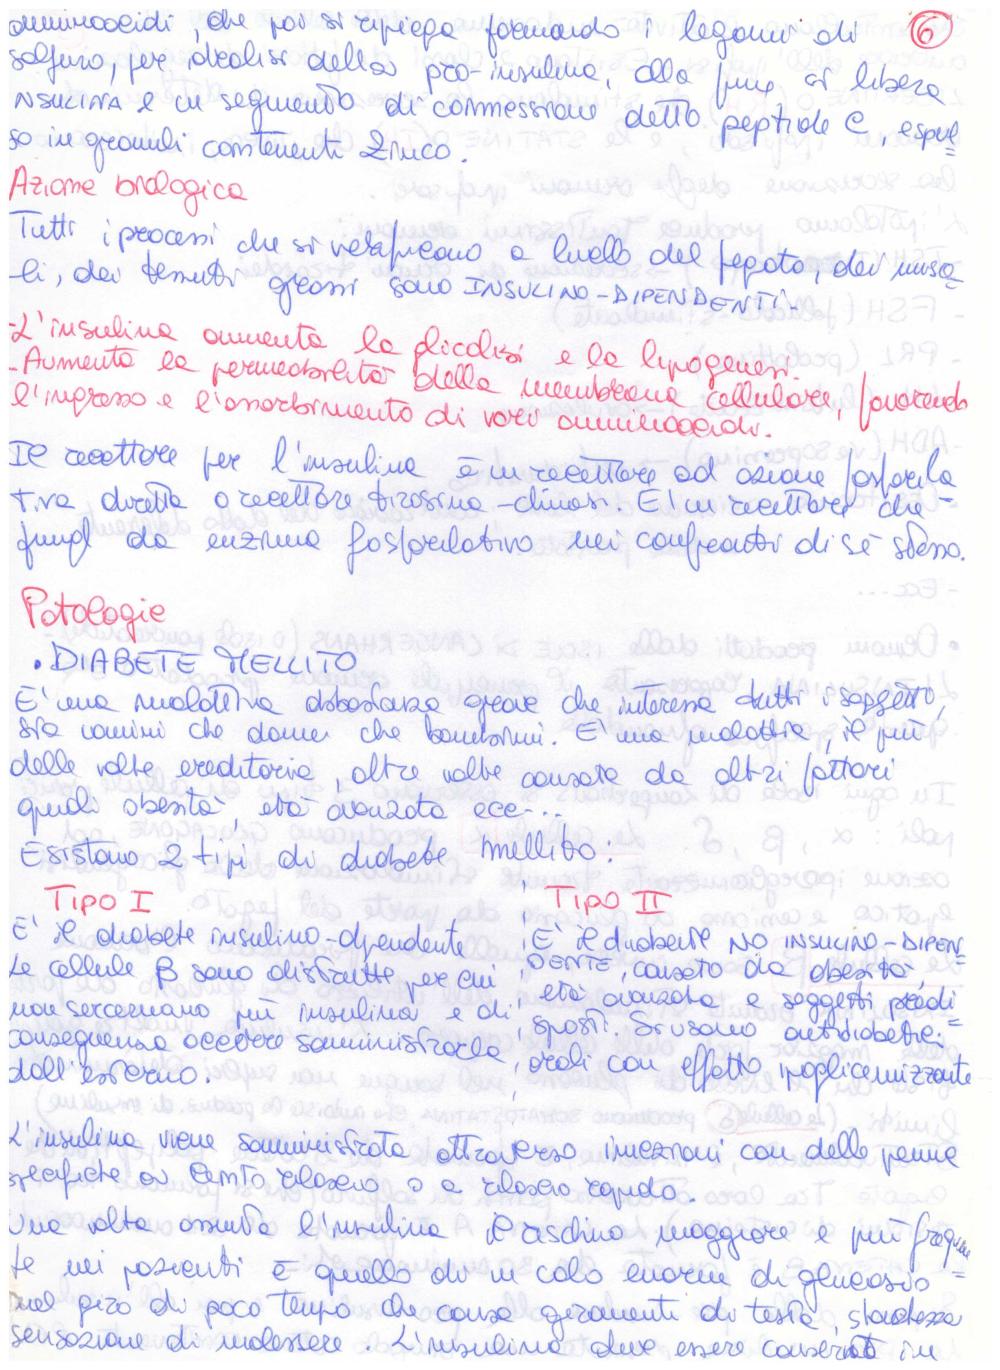 amminoacidi, che poi si ripiega formando i legami di
6
solfuro, per idrolisi della pro-insulina, alla fine si libera
NSULINA e un segmento di connessione detto peptide C, espul
so in granuli contenenti Zinco.
Azione biologica
Tutti i processi che si verificano a livello del fegato, dei musco
li, dei tessuti grassi sono INSULINO-DIPENDENTI.
-L'insulina aumenta la glicolisi e la lipogenesi.
-Aumenta la permeabilità della membrana cellulare, favorendo
l'ingresso e l'assorbimento di vari amminoacidi.
Il recettore per l'insulina è un recettore ad azione fosforila
tiva diretta o recettore tirosina-chinasi. E' un recettore che
funge da enzima fosforilativo nei confronti di sè stesso.
Patologie
• DIABETE MELLITO
E' una malattia abbastanza grave che interessa tutti i soggetti,
sia uomini che donne che bambini. E' una malattia, il più
delle volte ereditaria, altre volte causata da altri fattori
quali obesità, età avanzata ecc...
Esistono 2 tipi di diabete mellito:
TIPO I
E' il diabete insulino-dipendente
Le cellule β sono distrutte per cui
non secernano più insulina e di
conseguenza occorre somministrarla
dall'esterno.
TIPO II
E' il diabete NO INSULINO-DIPEN
DENTE, causato da obesità,
età avanzata e soggetti predi
sposti. Si usano antidiabetici
orali con effetto ipoglicemizzante
L'insulina viene somministrata attraverso iniezioni con delle penne
specifiche a lento rilascio o a rilascio rapido.
Una volta assunta l'insulina il rischio maggiore e più freque
te nei pazienti è quello di un calo enorme di glucosio
nel giro di poco tempo che causa giramenti di testa, stanchezza
sensazione di malessere. L'insulina deve essere conservata in